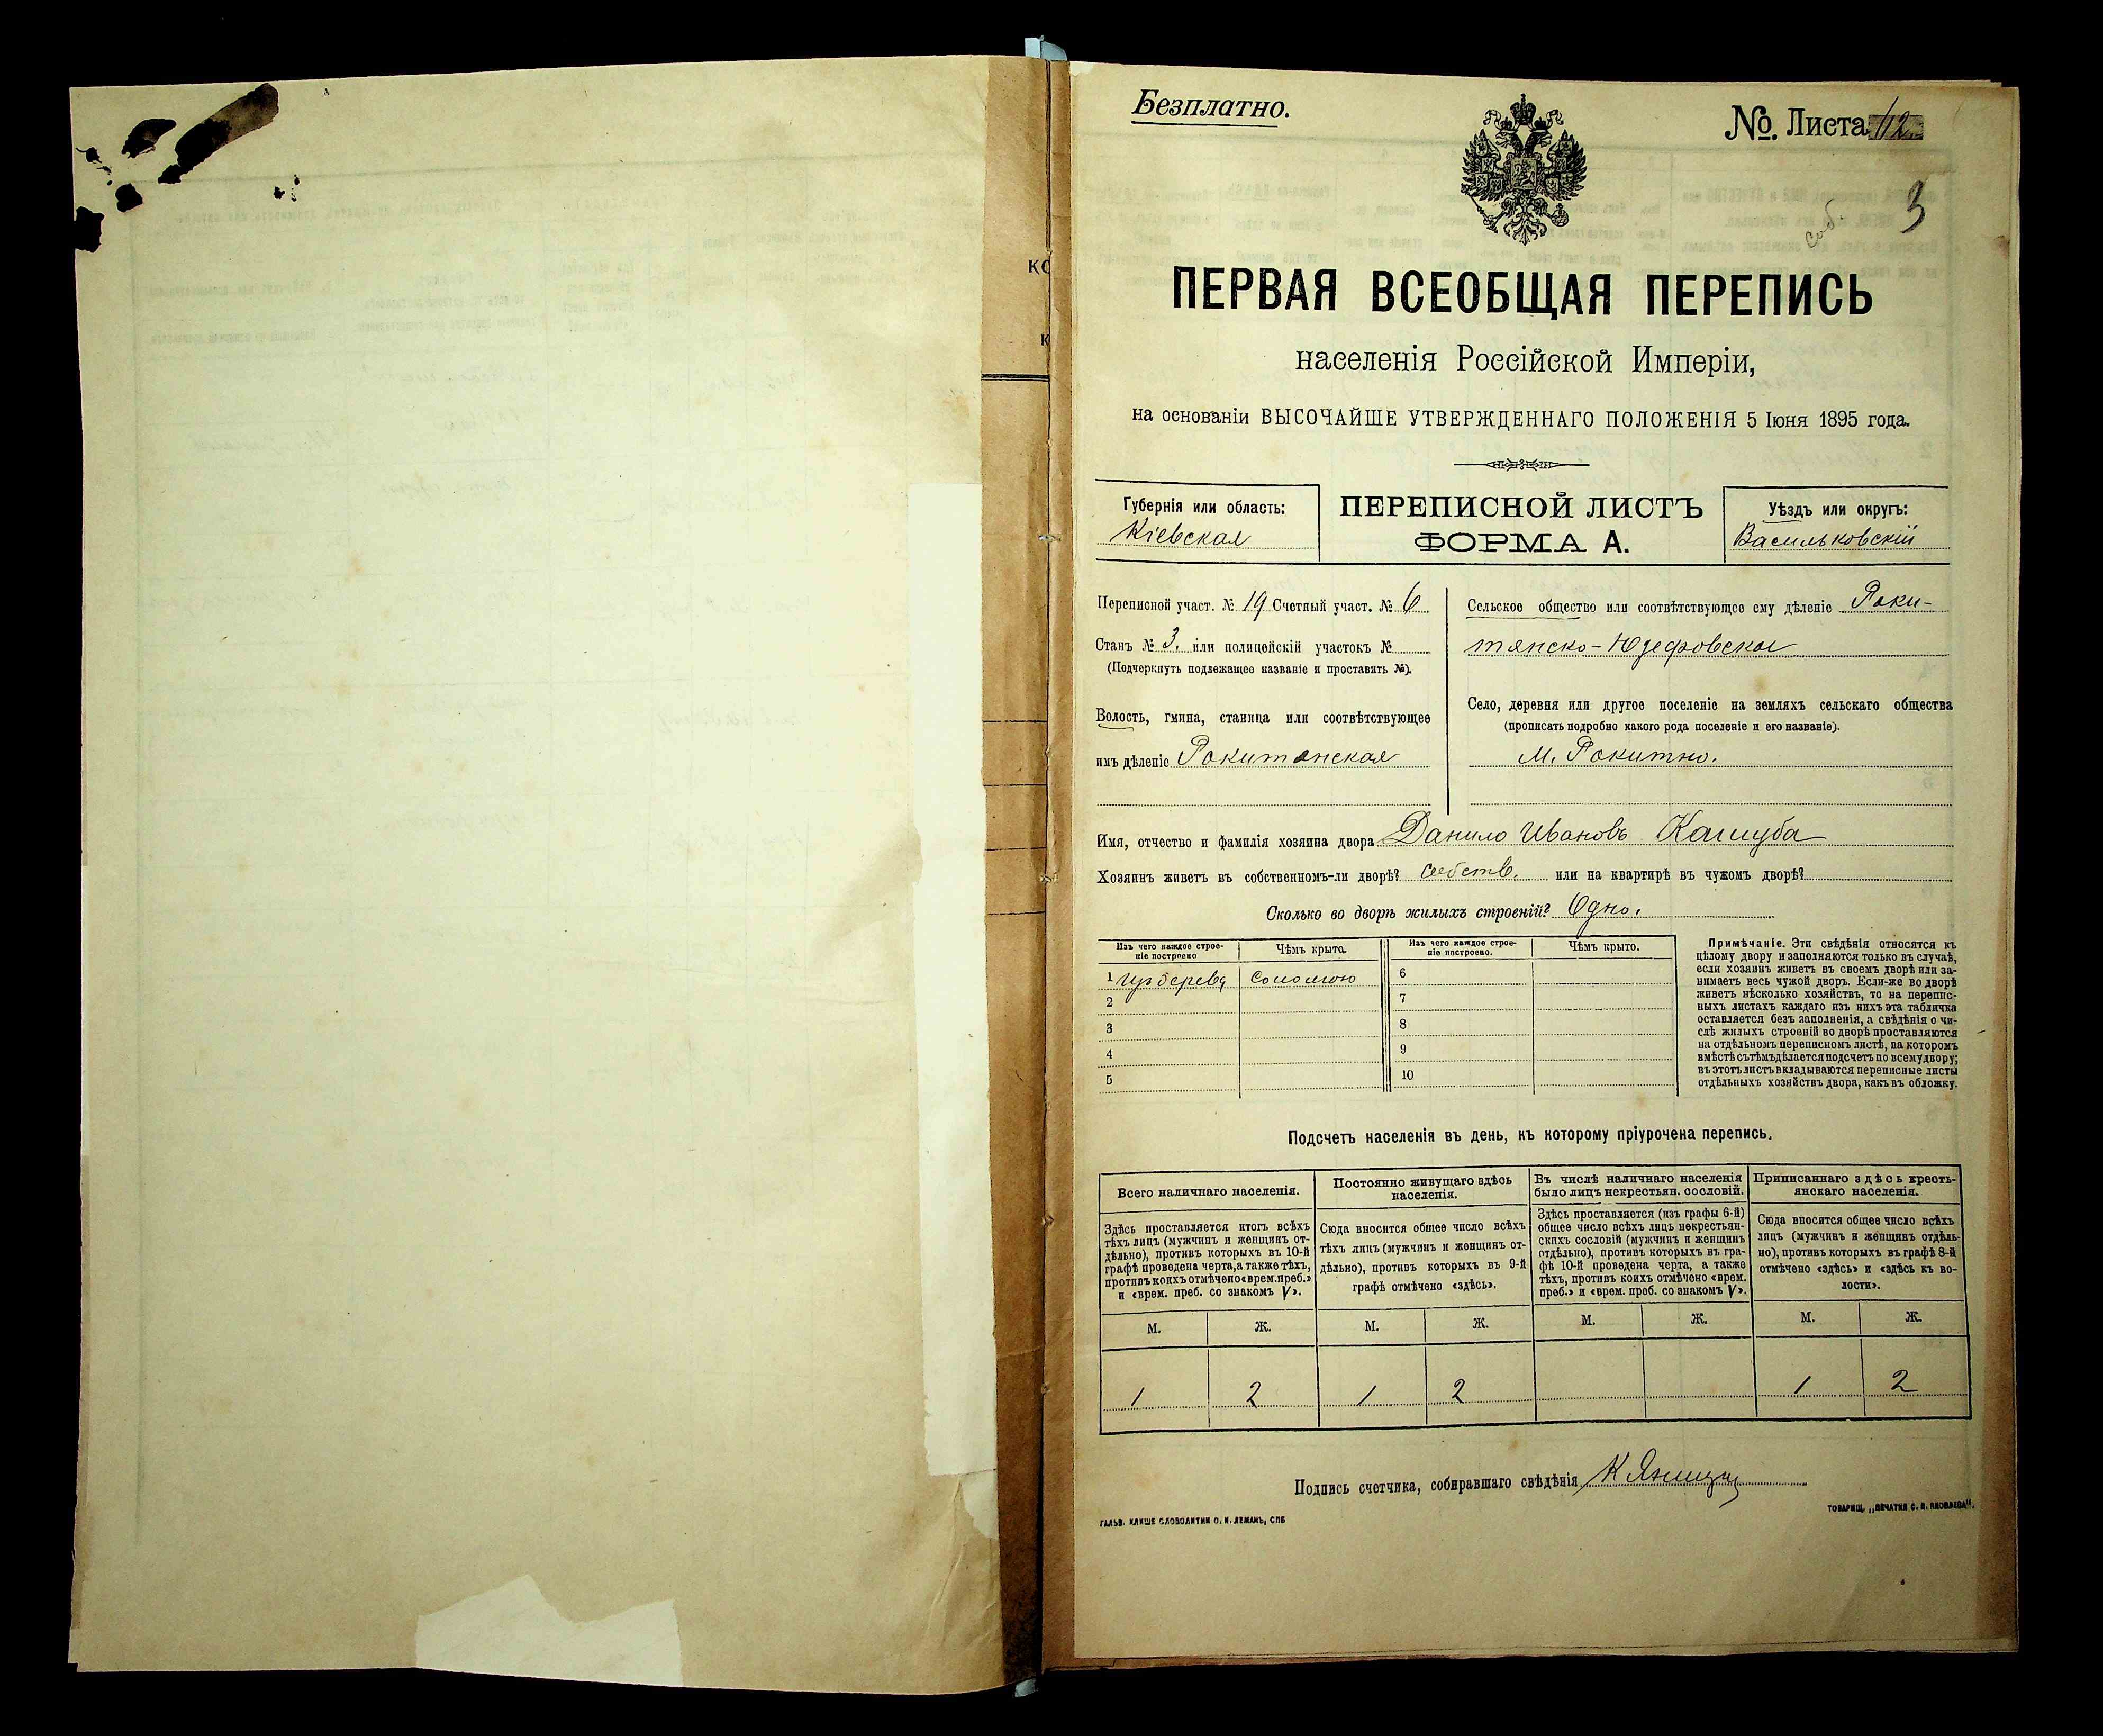 Безплатно.
№. Листа 12
соб. 3
ПЕРВАЯ ВСЕОБЩАЯ ПЕРЕПИСЬ
населенія Россійской Имперіи,
на основаніи ВЫСОЧАЙШЕ УТВЕРЖДЕННАГО ПОЛОЖЕНІЯ 5 Іюня 1895 года.
Губернія или область:
Кіевская
ПЕРЕПИСНОЙ ЛИСТЪ
ФОРМА А.
Уѣздъ или округъ:
Васильковскій
Переписной участ. № 19 Счетный участ. № 6
Станъ № 3. или полицейскій участокъ №
(Подчеркнуть подлежащее названіе и проставить №).
Волость, гмина, станица или соотвѣтствующее
имъ дѣленіе Рокитянская
Сельское общество или соотвѣтствующее ему дѣленіе Роки-
тянско-Юзефовское
Село, деревня или другое поселеніе на земляхъ сельскаго общества
(прописать подробно какого рода поселеніе и его названіе).
М. Рокитно.
Имя, отчество и фамилія хозяина двора Данило Ивановъ Кашуба
Хозяинъ живетъ въ собственномъ-ли дворѣ? собств. или на квартирѣ въ чужомъ дворѣ?
Сколько во дворѣ жилыхъ строеній? Одно.
Изъ чего каждое строе-
ніе построено
Чѣмъ крыто.
Изъ чего каждое строе-
ніе построено.
Чѣмъ крыто.
1 Изъ дерева Соломою
2
3
4
5
6
7
8
9
10
Примѣчаніе. Эти свѣдѣнія относятся къ
цѣлому двору и заполняются только въ случаѣ,
если хозяинъ живетъ въ своемъ дворѣ или за-
нимаетъ весь чужой дворъ. Если-же во дворѣ
живетъ нѣсколько хозяйствъ, то на перепис-
ныхъ листахъ каждаго изъ нихъ эта табличка
оставляется безъ заполненія, а свѣдѣнія о чи-
слѣ жилыхъ строеній во дворѣ проставляются
на отдѣльномъ переписномъ листѣ, на которомъ
вмѣстѣ съ тѣмъ дѣлается подсчетъ по всему двору;
въ этотъ листъ вкладываются переписные листы
отдѣльныхъ хозяйствъ двора, какъ въ обложку.
Подсчетъ населенія въ день, къ которому пріурочена перепись.
Всего наличнаго населенія.
Здѣсь проставляется итогъ всѣхъ
тѣхъ лицъ (мужчинъ и женщинъ от-
дѣльно), противъ которыхъ въ 10-й
графѣ проведена черта, а также тѣхъ,
противъ коихъ отмѣчено «врем. преб.»
и «врем. преб. со знакомъ V».
Постоянно живущаго здѣсь
населенія.
Сюда вносится общее число всѣхъ
тѣхъ лицъ (мужчинъ и женщинъ от-
дѣльно), противъ которыхъ въ 9-й
графѣ отмѣчено «здѣсь».
Въ числѣ наличнаго населенія
было лицъ некрестьян. сословій.
Здѣсь проставляется (изъ графы 6-й)
общее число всѣхъ лицъ некрестьян-
скихъ сословій (мужчинъ и женщинъ
отдѣльно), противъ которыхъ въ гра-
фѣ 10-й проведена черта, а также
тѣхъ, противъ коихъ отмѣчено «врем.
преб.» и «врем. преб. со знакомъ V».
Приписаннаго здѣсь кресть-
янскаго населенія.
Сюда вносится общее число всѣхъ
лицъ (мужчинъ и женщинъ отдѣль-
но), противъ которыхъ въ графѣ 8-й
отмѣчено «здѣсь» и «здѣсь въ во-
лости».
М. Ж. М. Ж. М. Ж. М. Ж.
1 2 1 2 1 2
Подпись счетчика, собиравшаго свѣдѣнія К
ГАЛЬВ. КЛИШЕ СЛОВОЛИТНИ О. И. ЛЕМАНЪ, СПБ
ТОВАРИЩ. „ПЕЧАТНЯ С. П. ЯКОВЛЕВА".